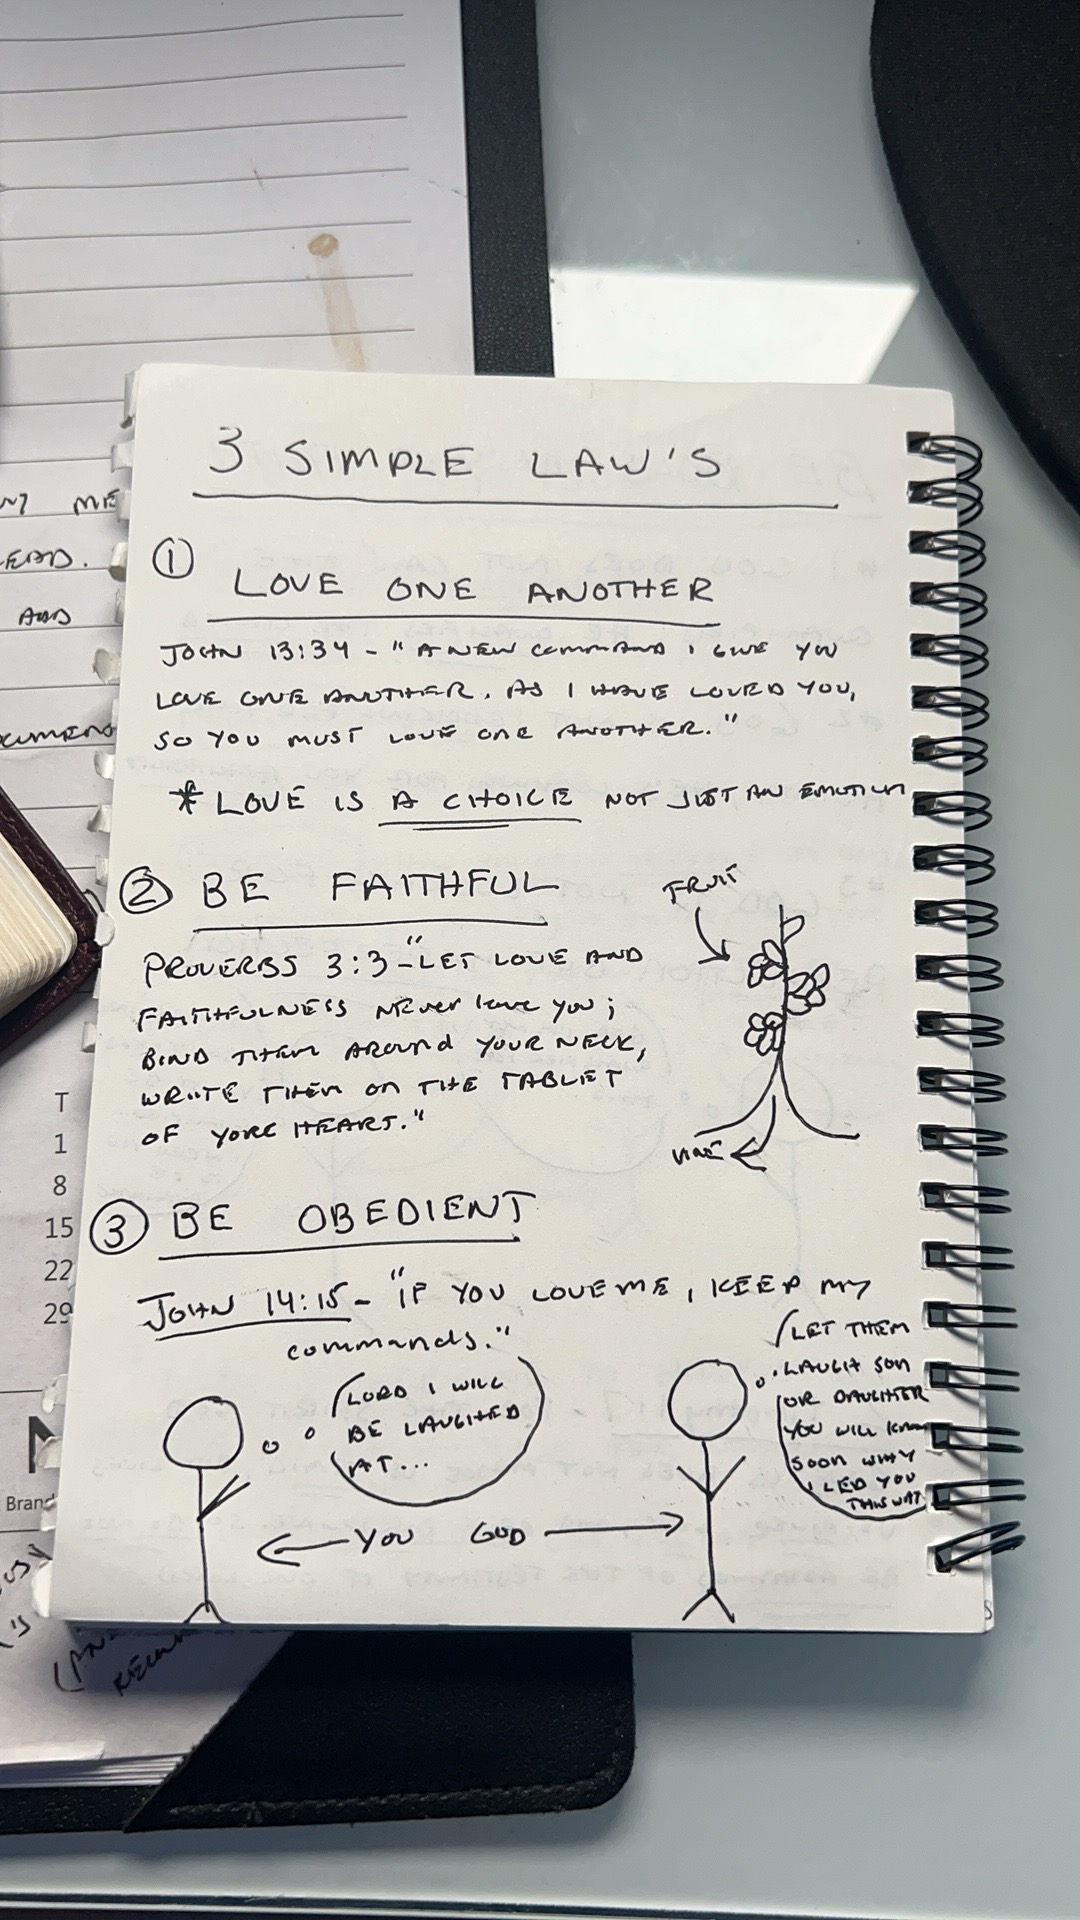 3 SIMPLE LAW'S
①
LOVE ONE ANOTHER
JOHN 13:34 - "A NEW COMMAND I GIVE YOU
LOVE ONE ANOTHER. AS I HAVE LOVED YOU,
SO YOU MUST LOVE ONE ANOTHER."
* LOVE IS A CHOICE NOT JUST AN EMOTION
② BE FAITHFUL
FRUIT
PROVERBS 3:3 - "LET LOVE AND
FAITHFULNESS NEVER leave you;
BIND THEM AROUND YOUR NECK,
WRITE THEM ON THE TABLET
OF YORE HEART."
VINE
③ BE OBEDIENT
JOHN 14:15 - "IF YOU LOVE ME, KEEP MY
commands."
LORD I WILL
BE LAUGHED
AT...
LET THEM
LAUGH SON
OR DAUGHTER
YOU WILL KNOW
SOON WHY
I LED YOU
THIS WAY
YOU GOD
ME
EAD.
AND
T
1
8
15
22
29
N
Brand